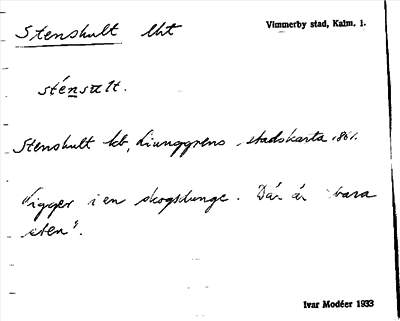 Stenshult lht
Vimmerby stad, Kalm. l.
sténsult.
Stenshult kb, Liunggrens stadskarta 1861.
Ligger i en skogsdunge. Där är bara
sten".
Ivar Modéer 1933